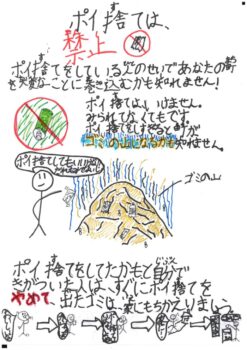 ポイ捨ては、
禁止
ポイ捨てをしているどのせいであなたの町
を失楽なことに巻き込むかも知れません!
ポイ捨てはいけません。
みられてなくてもです。
ポイ捨てをしすぎると町が
ゴミの山になるかも知れません。
ポイ捨てしてもいいかな
ゴミの山
ポイ捨てをしてたかもと自分で
きがついた人は、すぐにポイ捨てを
やめて、出たゴミは家にもちかえりましょう